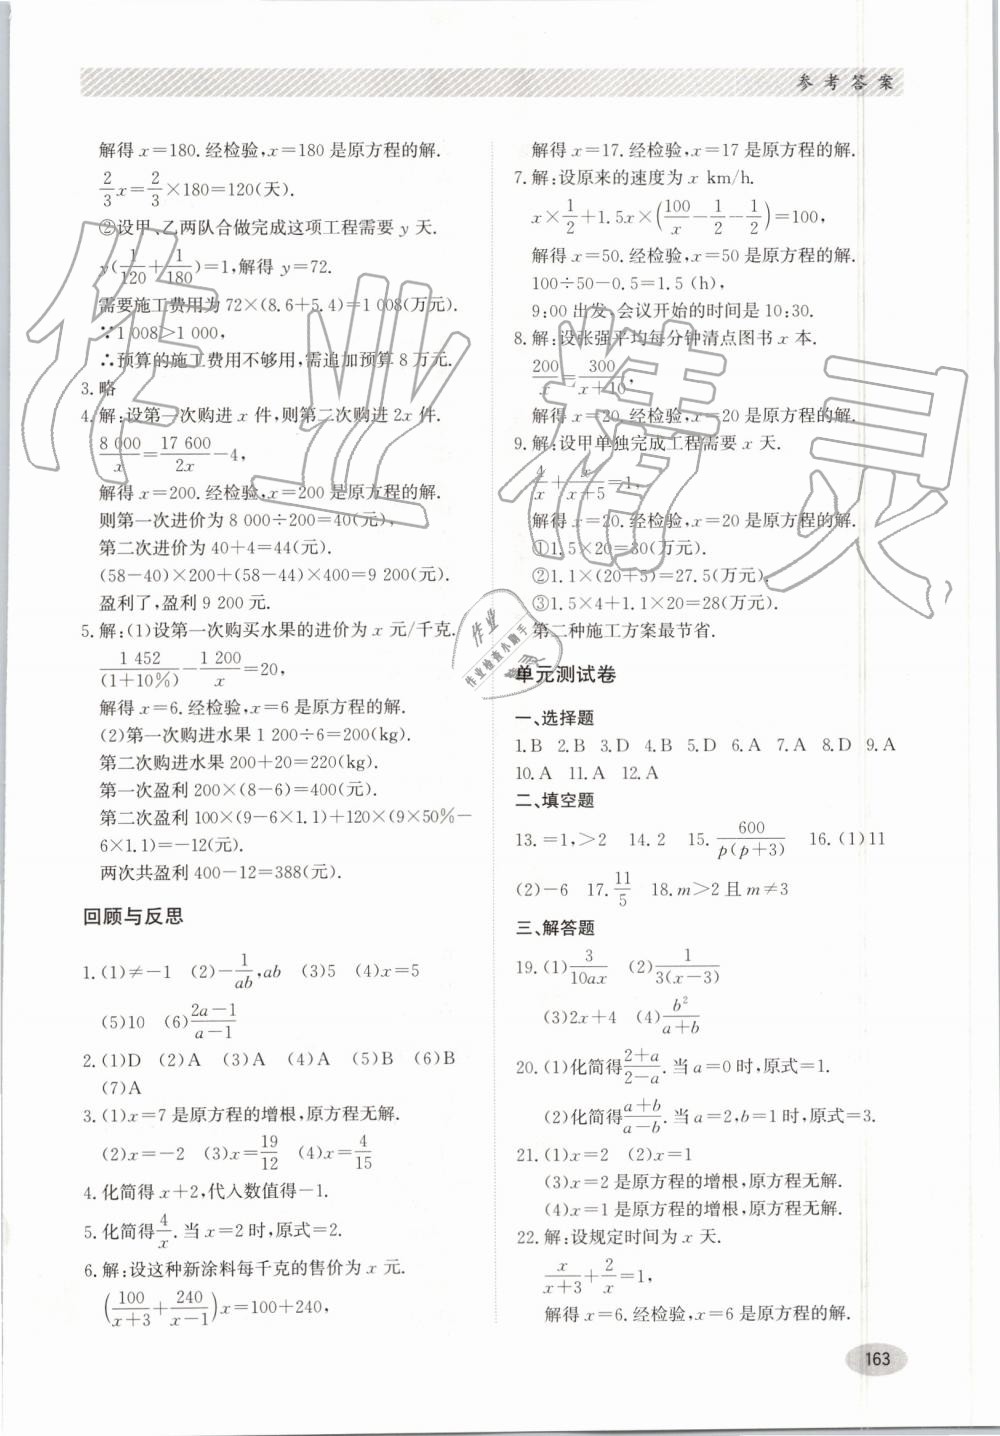 参考答案
解得 x=180. 经检验,x=180 是原方程的解.
2/3 x=2/3×180=120(天).
②设甲、乙两队合做完成这项工程需要 y 天.
y(1/120+1/180)=1,解得 y=72.
需要施工费用为 72×(8.6+5.4)=1 008(万元).
∵1 008>1 000,
∴预算的施工费用不够用,需追加预算 8 万元.
3. 略
4. 解:设第一次购进 x 件,则第二次购进 2x 件.
8 000/x=17 600/2x-4,
解得 x=200. 经检验,x=200 是原方程的解.
则第一次进价为 8 000÷200=40(元),
第二次进价为 40+4=44(元).
(58-40)×200+(58-44)×400=9 200(元).
盈利了,盈利 9 200 元.
5. 解:(1)设第一次购买水果的进价为 x 元/千克.
1 452/(1+10%)-1 200/x=20,
解得 x=6. 经检验,x=6 是原方程的解.
(2)第一次购进水果 1 200÷6=200(kg).
第二次购进水果 200+20=220(kg).
第一次盈利 200×(8-6)=400(元).
第二次盈利 100×(9-6×1.1)+120×(9×50%-
6×1.1)=-12(元).
两次共盈利 400-12=388(元).
回顾与反思
1. (1)≠-1 (2)-1/ab,ab (3)5 (4)x=5
(5)10 (6)2a-1/a-1
2. (1)D (2)A (3)A (4)A (5)B (6)B
(7)A
3. (1)x=7 是原方程的增根,原方程无解.
(2)x=-2 (3)x=19/12 (4)x=4/15
4. 化简得 x+2,代入数值得-1.
5. 化简得4/x. 当 x=2 时,原式=2.
6. 解:设这种新涂料每千克的售价为 x 元.
(100/x+3+240/x-1)x=100+240,
解得 x=17. 经检验,x=17 是原方程的解.
7. 解:设原来的速度为 x km/h.
x×1/2+1.5x×(100/x-1/2-1/2)=100,
解得 x=50. 经检验,x=50 是原方程的解.
100÷50-0.5=1.5 (h),
9:00 出发,会议开始的时间是 10:30.
8. 解:设张强平均每分钟清点图书 x 本.
200/x=300/x+10,
解得 x=20. 经检验,x=20 是原方程的解.
9. 解:设甲单独完成工程需要 x 天.
4/x+x/x+5=1,
解得 x=20. 经检验,x=20 是原方程的解.
①1.5×20=30(万元).
②1.1×(20+5)=27.5(万元).
③1.5×4+1.1×20=28(万元).
第二种施工方案最节省.
单元测试卷
一、选择题
1. B 2. B 3. D 4. B 5. D 6. A 7. A 8. D 9. A
10. A 11. A 12. A
二、填空题
13. =1,>2 14. 2 15. 600/p(p+3) 16. (1)11
(2)-6 17. 11/5 18. m>2 且 m≠3
三、解答题
19. (1)3/10ax (2)1/3(x-3)
(3)2x+4 (4)b²/a+b
20. (1)化简得2+a/2-a. 当 a=0 时,原式=1.
(2)化简得a+b/a-b. 当 a=2,b=1 时,原式=3.
21. (1)x=2 (2)x=1
(3)x=2 是原方程的增根,原方程无解.
(4)x=1 是原方程的增根,原方程无解.
22. 解:设规定时间为 x 天.
x/x+3+2/x=1,
解得 x=6. 经检验,x=6 是原方程的解.
163
作业精灵
作业
作业检查小助手
精灵